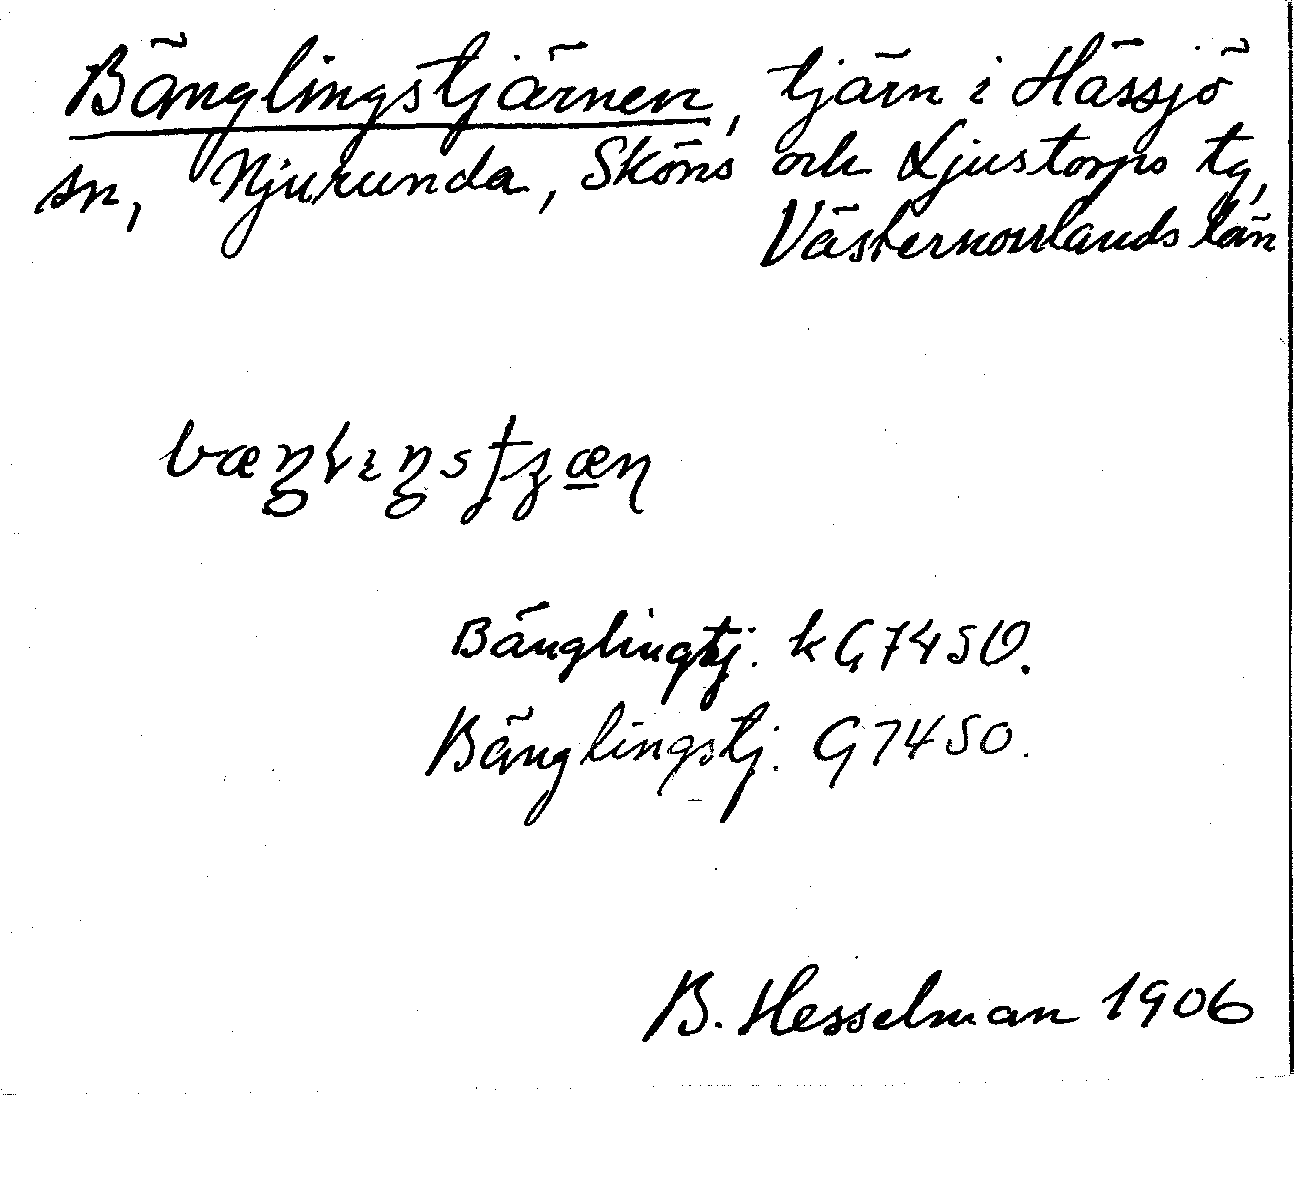 Bänglingstjärnen, tjärn i Hässjö
sn, Njurunda, Sköns och Ljustorps tg,
Västernorrlands län
Bänglingtj. kG7450.
Bänglingstj. G7450.
B. Hesselman 1906